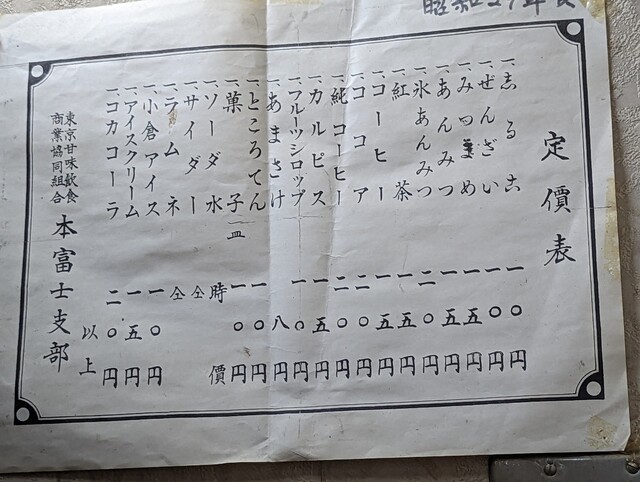 昭和
定價表
一、志るこ 一〇円
一、ぜんざい 一〇円
一、みつまめ 一五円
一、あんみつ 一五円
一、氷あんみつ 二〇円
一、紅茶 一五円
一、コーヒー 一五円
一、ココア 二〇円
一、純コーヒー 二〇円
一、カルピス 一五円
一、フルーツシロップ 一〇円
一、あまさけ 八円
一、ところてん 一〇円
一、菓子一皿 一〇円
一、ソーダ水 時價
一、サイダー 仝
一、ラムネ 仝
一、小倉アイス 一〇円
一、アイスクリーム 一五円
一、コカコーラ 二〇円
以上
東京甘味飲食
商業協同組合
本富士支部